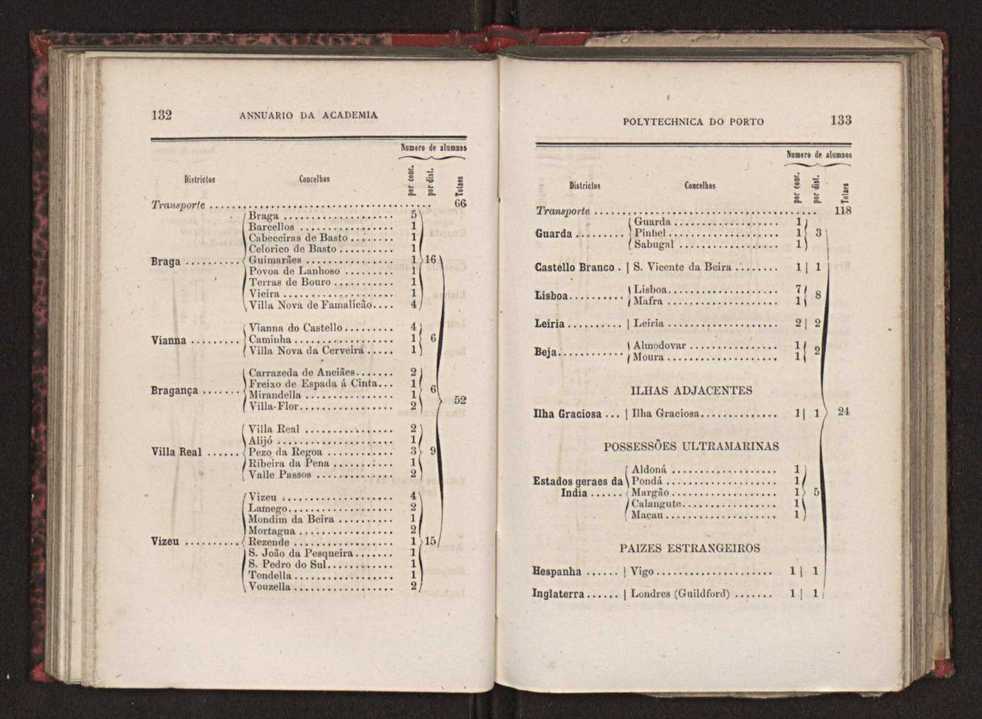 132 ANNUARIO DA ACADEMIA
Numero de alumnos
Districtos Concelhos por conc. por dist. Totaes
Transporte 66
Braga 5
Barcellos 1
Cabeceiras de Basto 1
Celorico de Basto 1
Braga Guimarães 1 16
Povoa de Lanhoso 1
Terras de Bouro 1
Vieira 1
Villa Nova de Famalicão 4
Vianna do Castello 4
Vianna Caminha 1 6
Villa Nova da Cerveira 1
Carrazeda de Anciães 2
Freixo de Espada á Cinta 1
Bragança Mirandella 1 6
Villa-Flor 2
52
Villa Real 2
Alijó 1
Villa Real Pezo da Regoa 3 9
Ribeira da Pena 1
Valle Passos 2
Vizeu 4
Lamego 2
Mondim da Beira 1
Mortagua 2
Vizeu Rezende 1 15
S. João da Pesqueira 1
S. Pedro do Sul 1
Tondella 1
Vouzella 2
POLYTECHNICA DO PORTO 133
Numero de alumnos
Districtos Concelhos por conc. por dist. Totaes
Transporte 118
Guarda 1
Guarda Pinhel 1 3
Sabugal 1
Castello Branco S. Vicente da Beira 1 1
Lisboa 7
Lisboa 8
Mafra 1
Leiria Leiria 2 2
Almodovar 1
Beja 2
Moura 1
ILHAS ADJACENTES
Ilha Graciosa Ilha Graciosa 1 1 24
POSSESSÕES ULTRAMARINAS
Aldoná 1
Estados geraes da Pondá 1
India Margão 1 5
Calangute 1
Macau 1
PAIZES ESTRANGEIROS
Hespanha Vigo 1 1
Inglaterra Londres (Guildford) 1 1